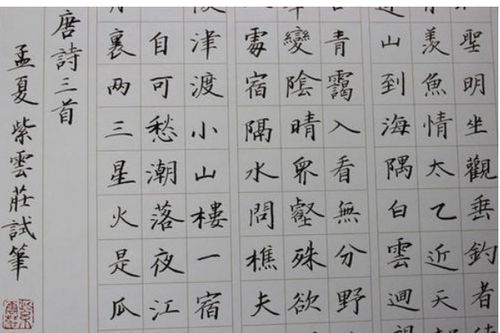 聖明坐觀垂釣者
羨魚情太乙近天
山到海隅白雲迴
青靄入看無分野
變陰晴眾壑殊欲
處宿隔水問樵夫
津渡小山樓一宿
自可愁潮落夜江
裏两三星火是瓜
唐詩三首
孟夏紫雲莊試筆